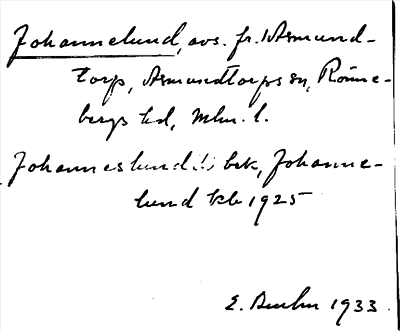 Johannelund, avs. fr. Asmund-
torp, Asmundtorps sn, Rönne-
bergs hd, Mlm. l.
Johanneslund (!) bek, Johanne-
lund kb 1925
E. 1933